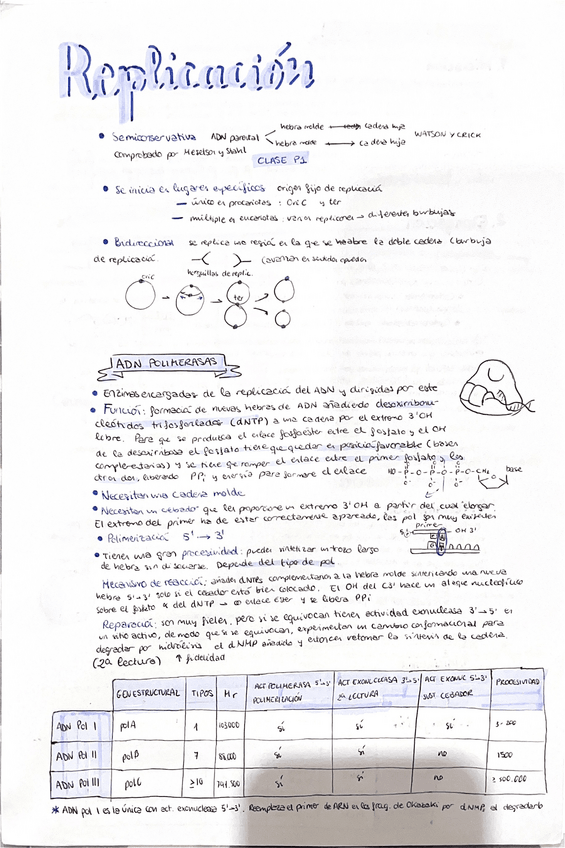 Replicación
• Semiconservativa ADN parental hebra molde → cadena hija WATSON Y CRICK
hebra molde → cadena hija
comprobado por Meselson y Stahl
CLASE P1
• Se inicia en lugares específicos origen fijo de replicación
— único en procariotas : OriC y ter
— múltiple en eucariotas : varios replicones → diferentes burbujas
• Bidireccional se replica una región en la que se abre la doble cadena (burbuja
de replicación (avanzan en sentidos opuestos
horquillas de replic.
oriC
ter
ADN POLIMERASAS
• Enzimas encargadas de la replicación del ADN y dirigidas por este
• Función: formación de nuevas hebras de ADN añadiendo desoxirribonu-
cleótidos trifosfatados (dNTP) a una cadena por el extremo 3'OH
libre. Para que se produzca el enlace fosfoéster entre el fosfato y el OH
de la desoxirribosa el fosfato tiene que quedar en posición favorable (bases
complementarias) y se tiene que romper el enlace entre el primer fosfato y los
otros dos, liberando PPi y energía para formar el enlace
HO-P-O-P-O-P-O-CH₂ base
• Necesitan una cadena molde
• Necesitan un cebador que les proporcione un extremo 3'OH a partir del cual elongar
El extremo del primer ha de estar correctamente apareado, las pol son muy exigentes
primer
OH 3'
• Polimerización 5' → 3'
• Tienen una gran procesividad: pueden sintetizar un trozo largo
de hebra sin disociarse. Depende del tipo de pol
Mecanismo de reacción: añaden dNTPs complementarios a la hebra molde sintetizando una nueva
hebra 5'→3' solo si el cebador está bien colocado. El OH del C3' hace un ataque nucleofílico
sobre el fosfato α del dNTP → enlace éster y se libera PPi
Reparación: son muy fieles, pero si se equivocan tienen actividad exonucleasa 3'→5' en
un sitio activo, de modo que si se equivocan, experimentan un cambio conformacional para
degradar por hidrólisis el dNMP añadido y entonces retoman la síntesis de la cadena.
(2ª lectura) ↑ fidelidad
GEN ESTRUCTURAL TIPOS Mr ACT POLIMERASA 5'→3' POLIMERIZACIÓN ACT EXONUCLEASA 3'→5' 2ª LECTURA ACT EXONUC 5'→3' SUST. CEBADOR PROCESIVIDAD
ADN Pol I polA 1 103000 sí sí sí 3-200
ADN Pol II polB 7 sí sí no 1500
ADN Pol III polC ≥10 sí sí no ≥500.000
* ADN pol I es la única con act. exonucleasa 5'→3'. Reemplaza el primer de ARN en los frag. de Okazaki por dNMP, al degradarlo